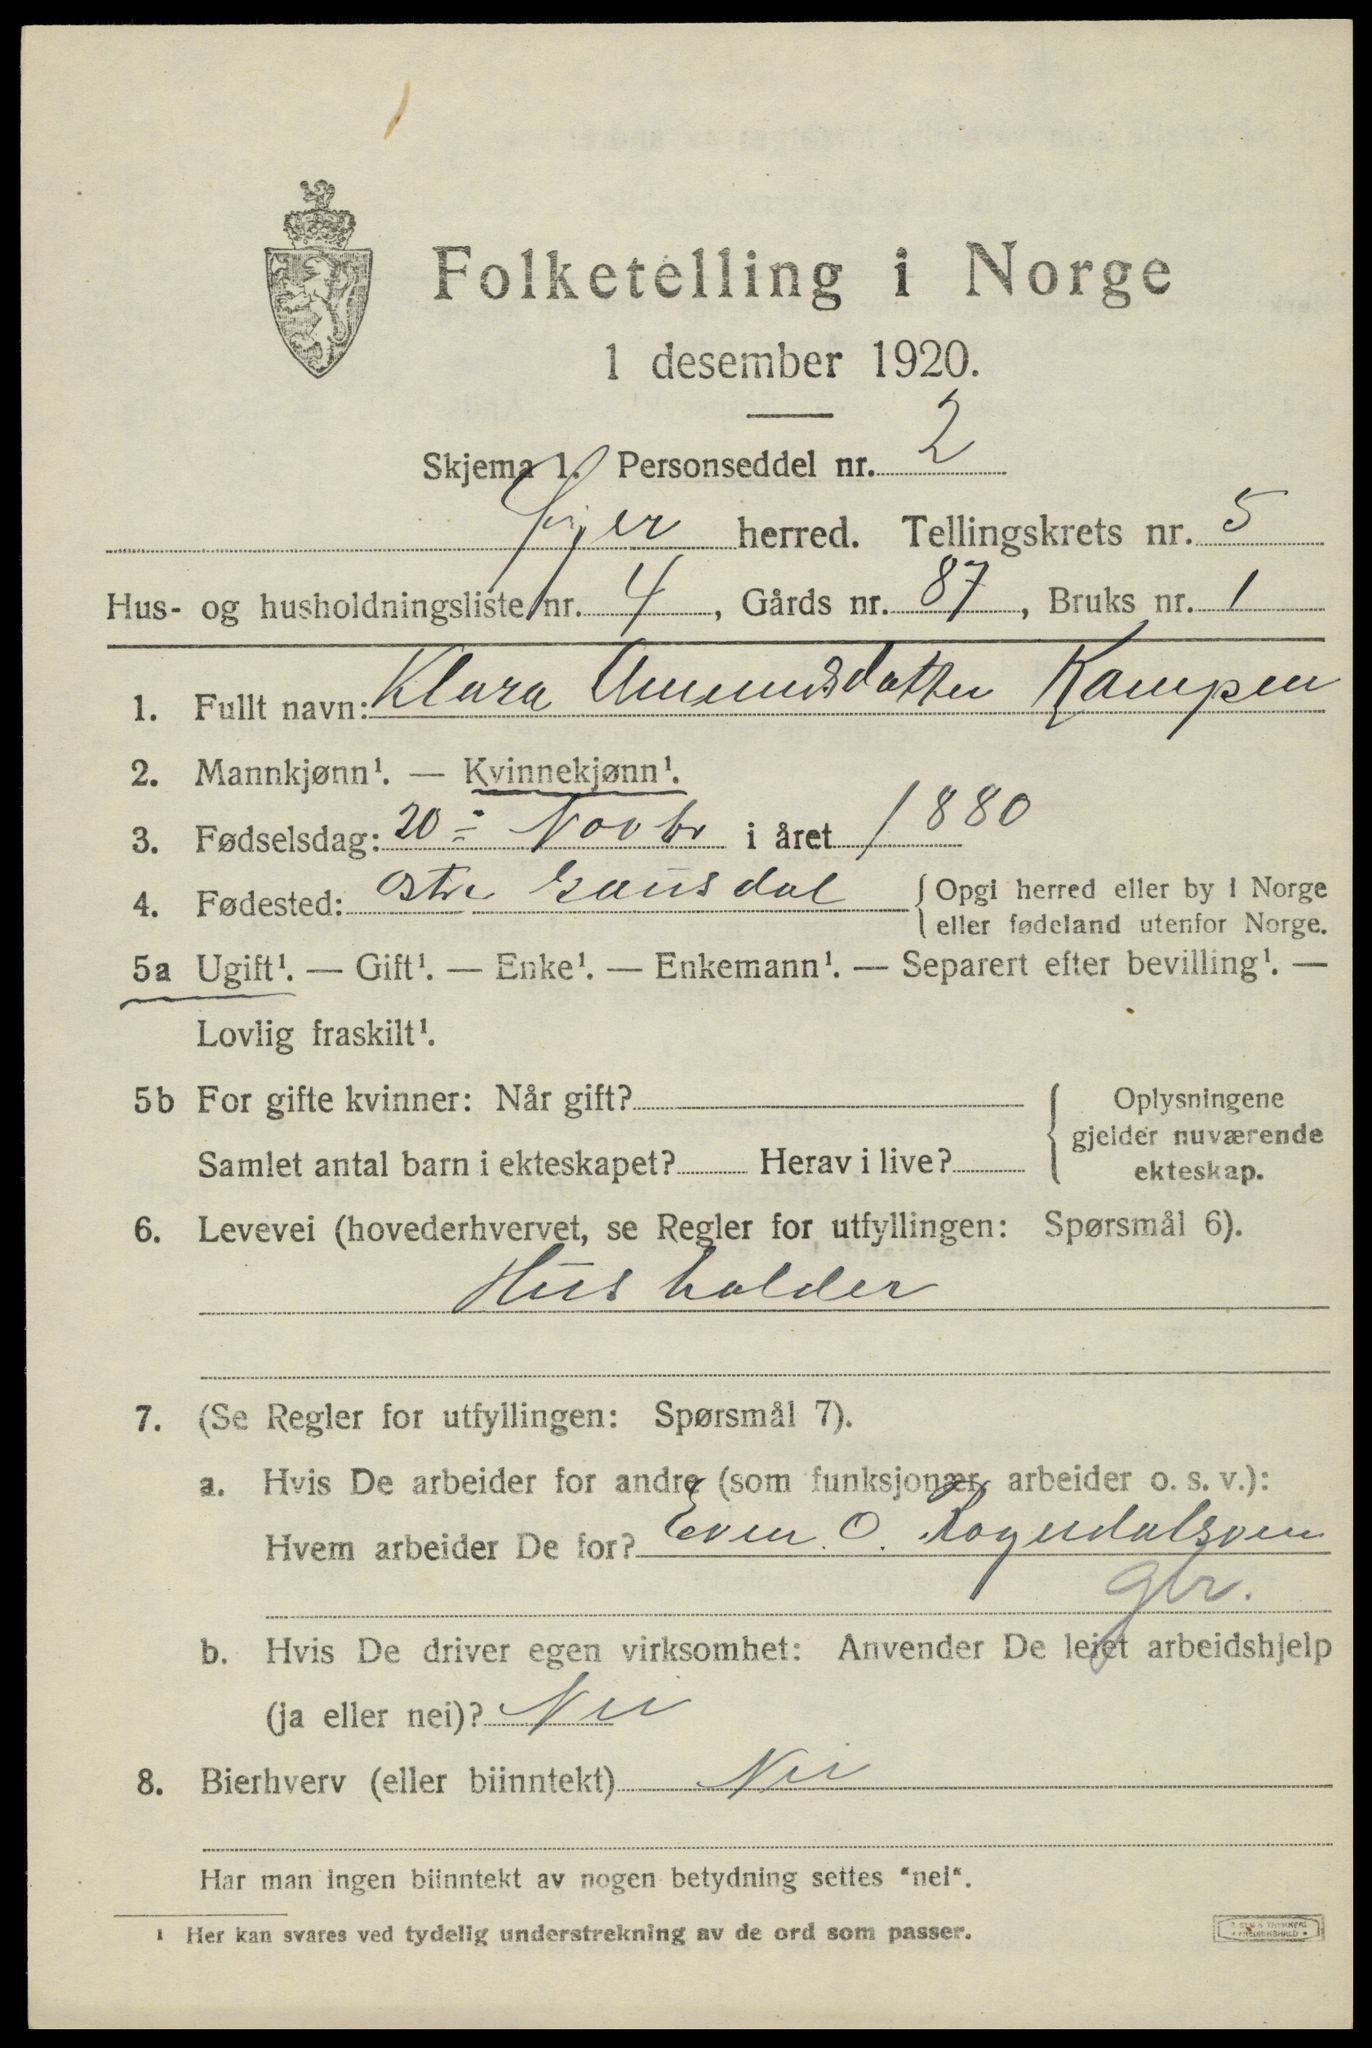 Folketelling i Norge
1 desember 1920.
Skjema 1. Personseddel nr. 2
Øyer herred. Tellingskrets nr. 5
Hus- og husholdningsliste nr. 4, Gårds nr. 87, Bruks nr. 1
1. Fullt navn: Klara Amundsdatter Kampen
2. Mannkjønn¹. — Kvinnekjønn¹.
3. Fødselsdag: 20 Novbr i året 1880
4. Fødested: Østre Gausdal { Opgi herred eller by i Norge
eller fødeland utenfor Norge.
5a Ugift¹. — Gift¹. — Enke¹. — Enkemann¹. — Separert efter bevilling¹. —
Lovlig fraskilt¹.
5b For gifte kvinner: Når gift? { Oplysningene
gjelder nuværende
ekteskap.
Samlet antal barn i ekteskapet? Herav i live?
6. Levevei (hovederhvervet, se Regler for utfyllingen: Spørsmål 6).
Husholder
7. (Se Regler for utfyllingen: Spørsmål 7).
a. Hvis De arbeider for andre (som funksjonær, arbeider o. s. v.):
Hvem arbeider De for? Even O.
gbr.
b. Hvis De driver egen virksomhet: Anvender De leiet arbeidshjelp
(ja eller nei)? Nei
8. Bierhverv (eller biinntekt) Nei
Har man ingen biinntekt av nogen betydning settes "nei".
¹ Her kan svares ved tydelig understrekning av de ord som passer.